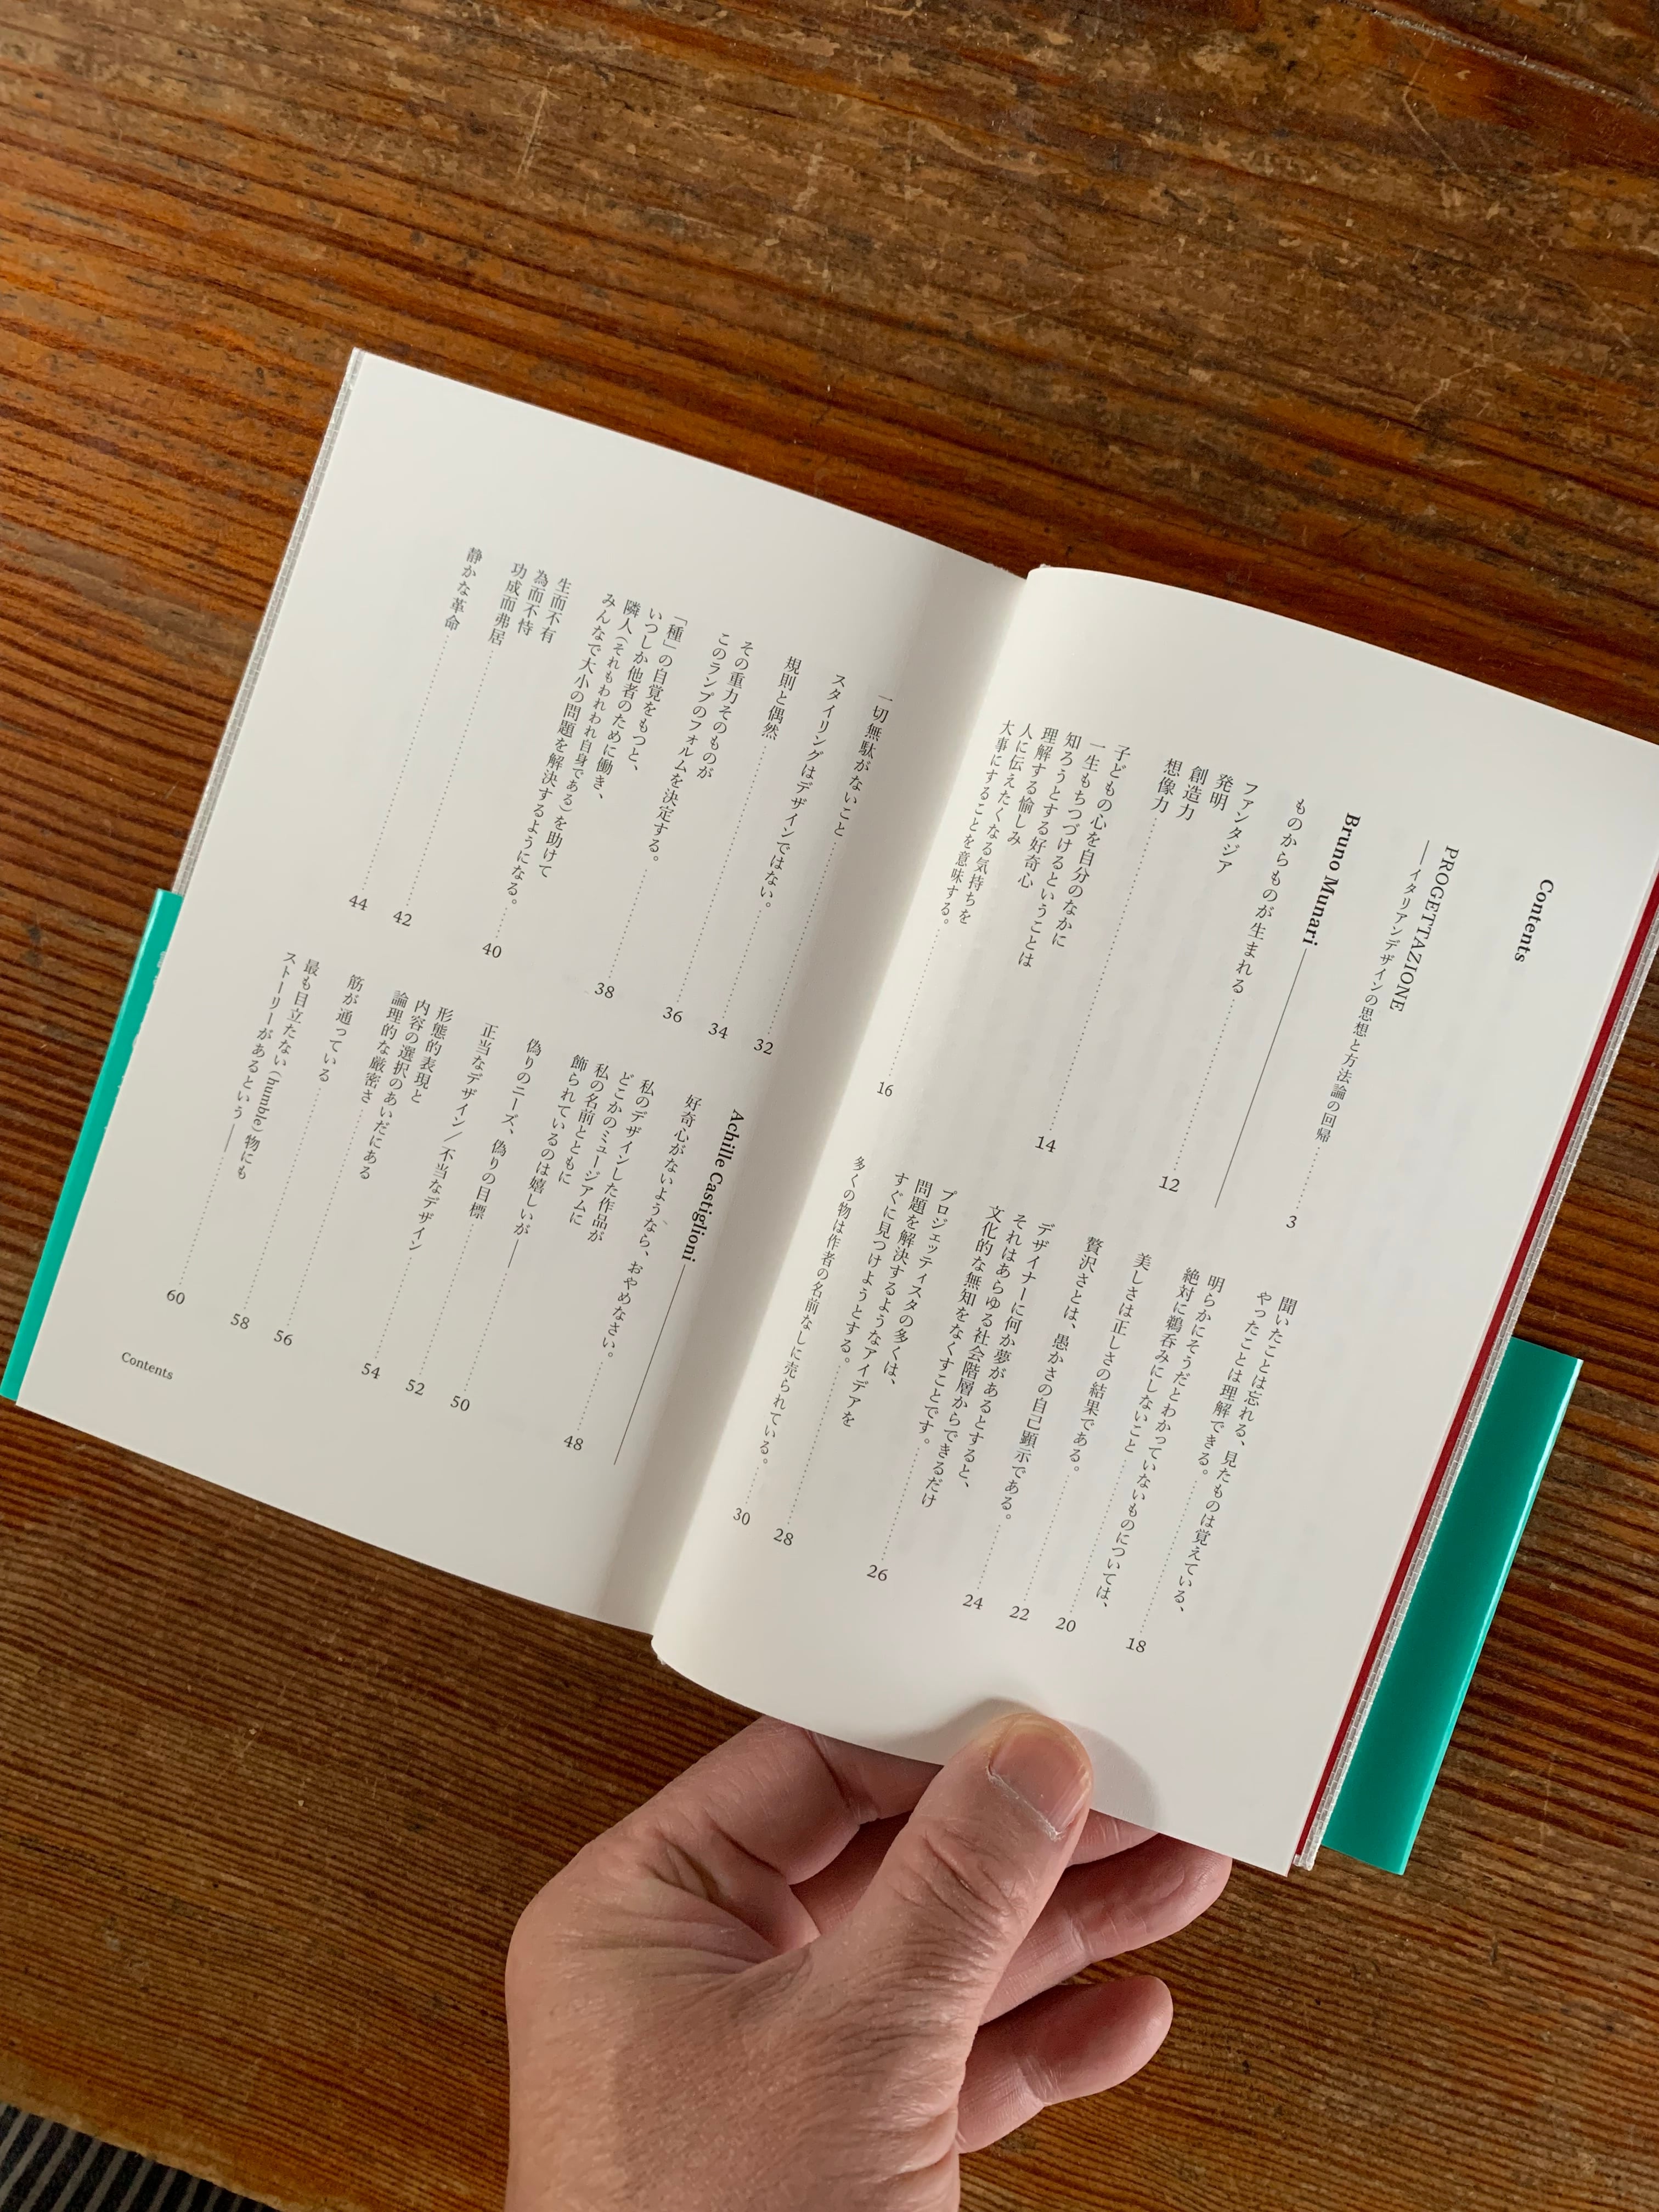 Contents
PROGETTAZIONE
——イタリアンデザインの思想と方法論の回帰 3
Bruno Munari
ものからものが生まれる
ファンタジア
発明
創造力
想像力 12
子どもの心を自分のなかに
一生もちつづけるということは
知ろうとする好奇心
理解する愉しみ
人に伝えたくなる気持ちを
大事にすることを意味する。 16
聞いたことは忘れる、見たものは覚えている、
やったことは理解できる。 18
明らかにそうだとわかっていないものについては、
絶対に鵜呑みにしないこと 20
美しさは正しさの結果である。 22
贅沢さとは、愚かさの自己顕示である。 24
デザイナーに何か夢があるとすると、
それはあらゆる社会階層からできるだけ
文化的な無知をなくすことです。 26
プロジェッティスタの多くは、
問題を解決するようなアイデアを
すぐに見つけようとする。 28
多くの物は作者の名前なしに売られている。 30
一切無駄がないこと 32
スタイリングはデザインではない。 34
規則と偶然 36
その重力そのものが
このランプのフォルムを決定する。 38
「種」の自覚をもつと、
いつしか他者のために働き、
隣人(それもわれわれ自身である)を助けて
みんなで大小の問題を解決するようになる。 40
生而不有
為而不恃
功成而弗居 42
静かな革命 44
Achille Castiglioni
好奇心がないようなら、おやめなさい。 48
私のデザインした作品が
どこかのミュージアムに
私の名前とともに
飾られているのは嬉しいが—— 50
偽りのニーズ、偽りの目標 52
正当なデザイン／不当なデザイン 54
形態的表現と
内容の選択のあいだにある
論理的な厳密さ 56
筋が通っている 58
最も目立たない(humble)物にも
ストーリーがあるという—— 60
Contents